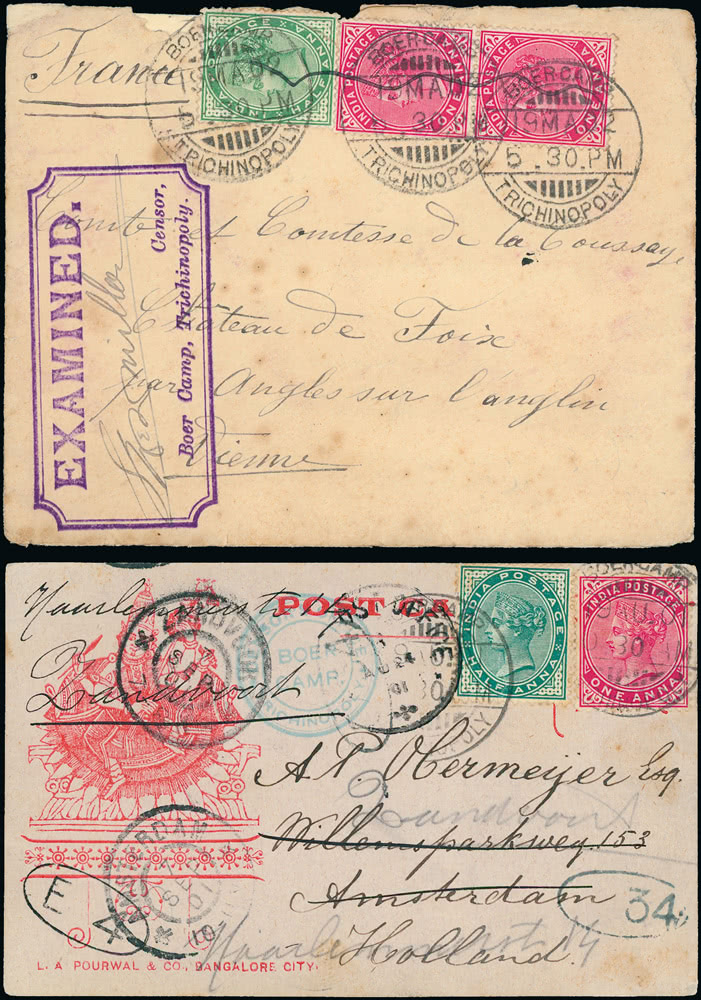 France
INDIA POSTAGE
HALF ANNA
INDIA POSTAGE
ONE ANNA
INDIA POSTAGE
ONE ANNA
BOER-CAMP
19 MA 02
PM
TRICHINOPOLY
BOER-CAMP
19 MA
.30
TRICHINOPOLY
BOER-CAMP
19 MA 02
5.30.PM
TRICHINOPOLY
EXAMINED.
Censor,
Boer Camp, Trichinopoly.
Comte et Comtesse de la Coussaye
Château de Foix
par Angles sur l'anglin
Vienne
POST CA
Haarlemmerstr
Zandvoort
ZANDVOORT
7
SEP
BOER
CAMP.
TRICHINOPOLY
AU 24
01
INDIA POSTAGE
HALF ANNA
INDIA POSTAGE
ONE ANNA
BOER CAMP
A. P. Obermeijer Esq.
Zandvoort
Willemsparkweg 153
Amsterdam
Holland.
Haarlemmerstr 14
AMSTERDAM
SEP
01
E
4
34
L. A. POURWAL & CO., BANGALORE CITY.